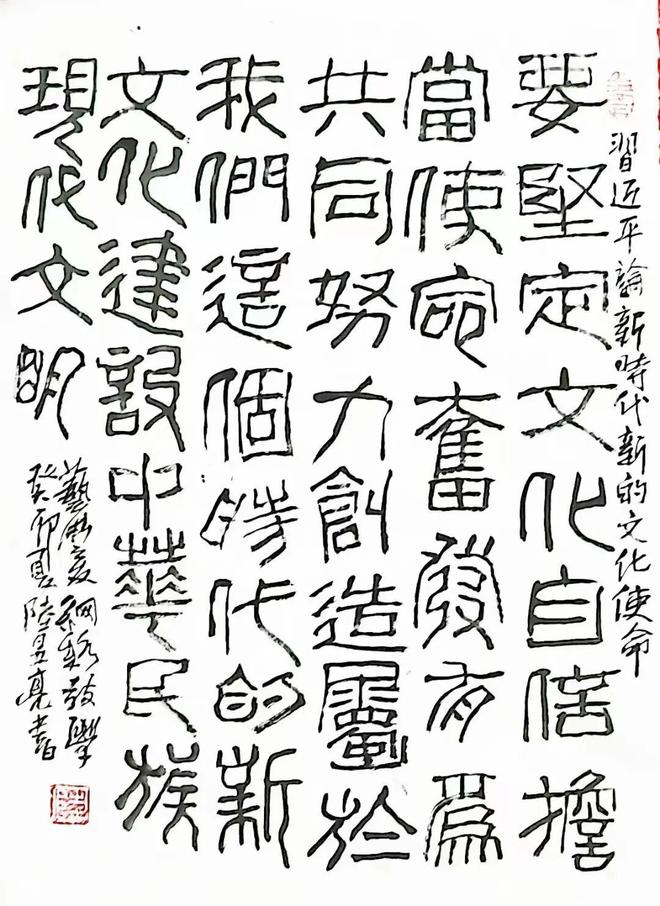 習近平論新時代新的文化使命
要堅定文化自信擔
當使命奮發有爲
共同努力創造屬於
我們這個時代的新
文化建設中華民族
現代文明
藝 教學
癸卯夏陸昱亮書